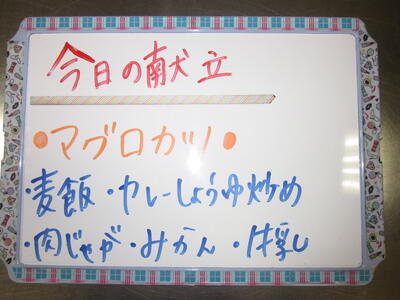 今日の献立
•マグロカツ•
・麦飯・カレーしょうゆ炒め
・肉じゃが・みかん・牛乳